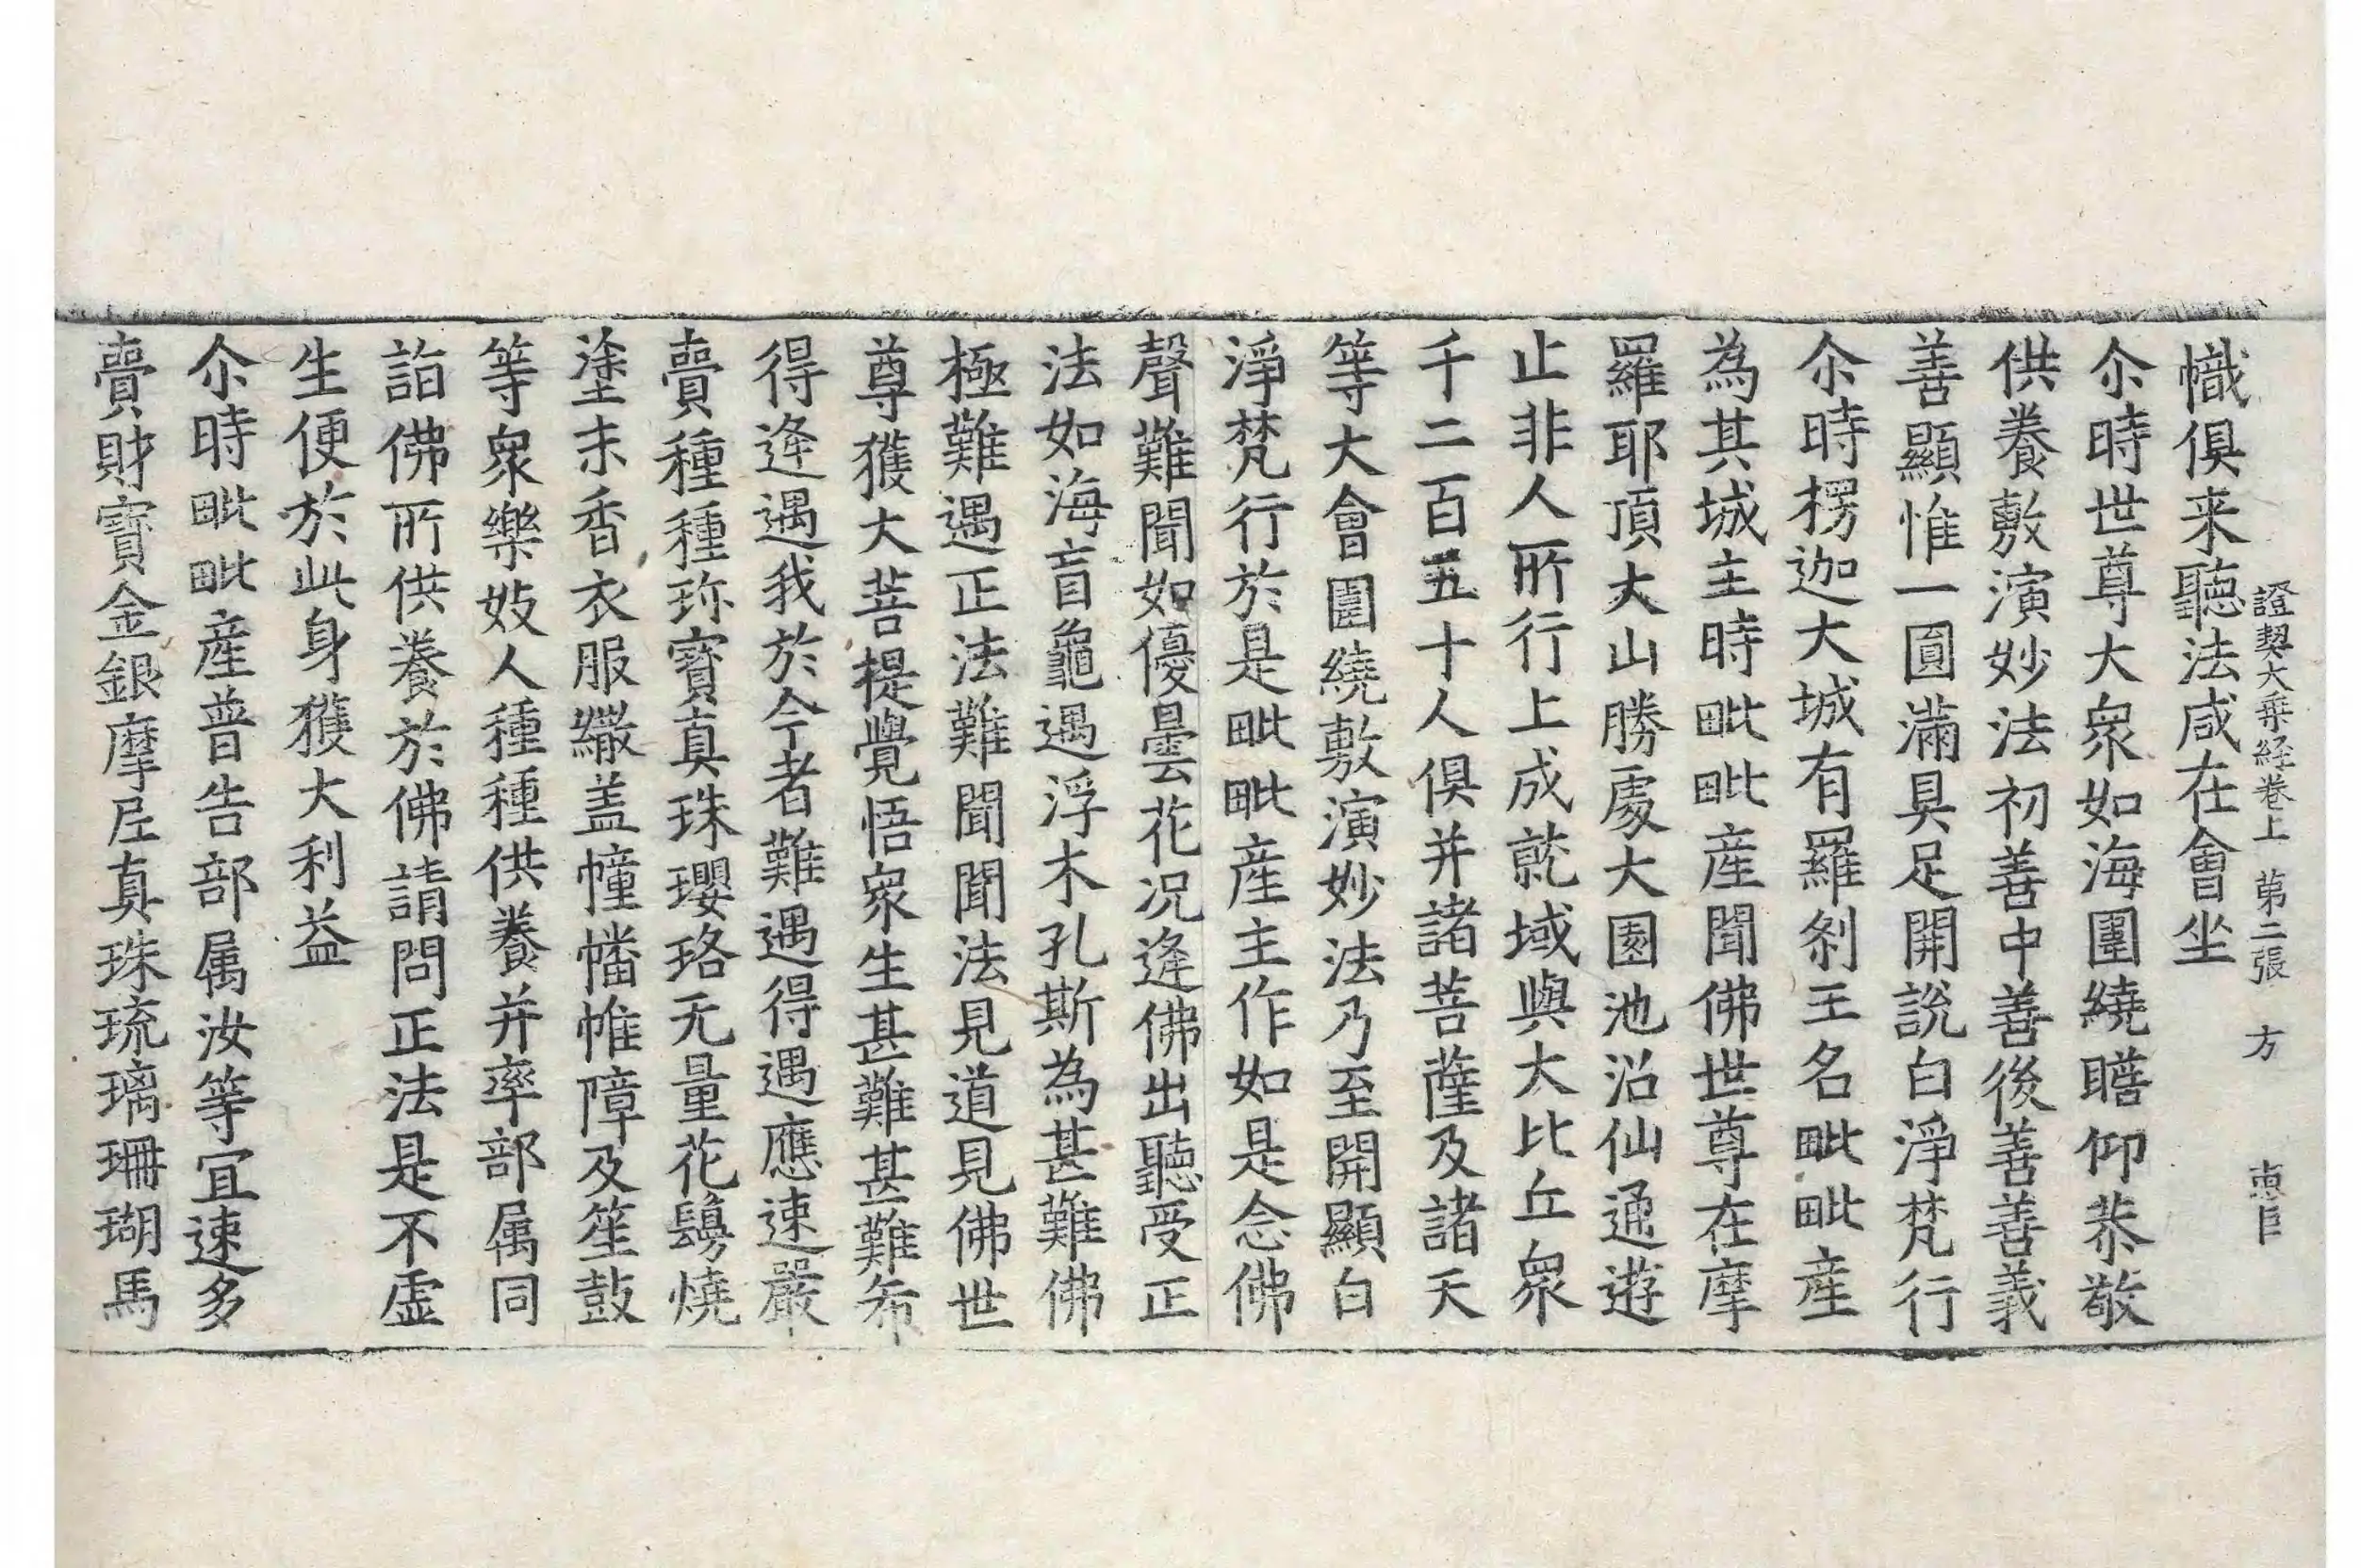 證契大乘経卷上 第二張 方 惠臣
幟俱来聽法咸在會坐
尒時世尊大衆如海圍繞瞻仰恭敬
供養敷演妙法初善中善後善善義
善顯惟一圓滿具足開說白淨梵行
尒時楞迦大城有羅剎王名毗毗産
為其城主時毗毗産聞佛世尊在摩
羅耶頂大山勝處大園池沼仙通遊
止非人所行上成就域與大比丘衆
千二百五十人俱并諸菩薩及諸天
等大會圍繞敷演妙法乃至開顯白
淨梵行於是毗毗産主作如是念佛
聲難聞如優曇花况逢佛出聽受正
法如海盲龜遇浮木孔斯為甚難佛
極難遇正法難聞聞法見道見佛世
尊獲大菩提覺悟衆生甚難甚難希
得逢遇我於今者難遇得遇應速嚴
賷種種珎寶真珠瓔珞无量花鬘燒
塗末香衣服繖盖幢幡帷障及笙鼓
等衆樂妓人種種供養并率部属同
詣佛所供養於佛請問正法是不虛
生便於此身獲大利益
尒時毗毗産普告部属汝等宜速多
賷財寶金銀摩尼真珠琉璃珊瑚馬